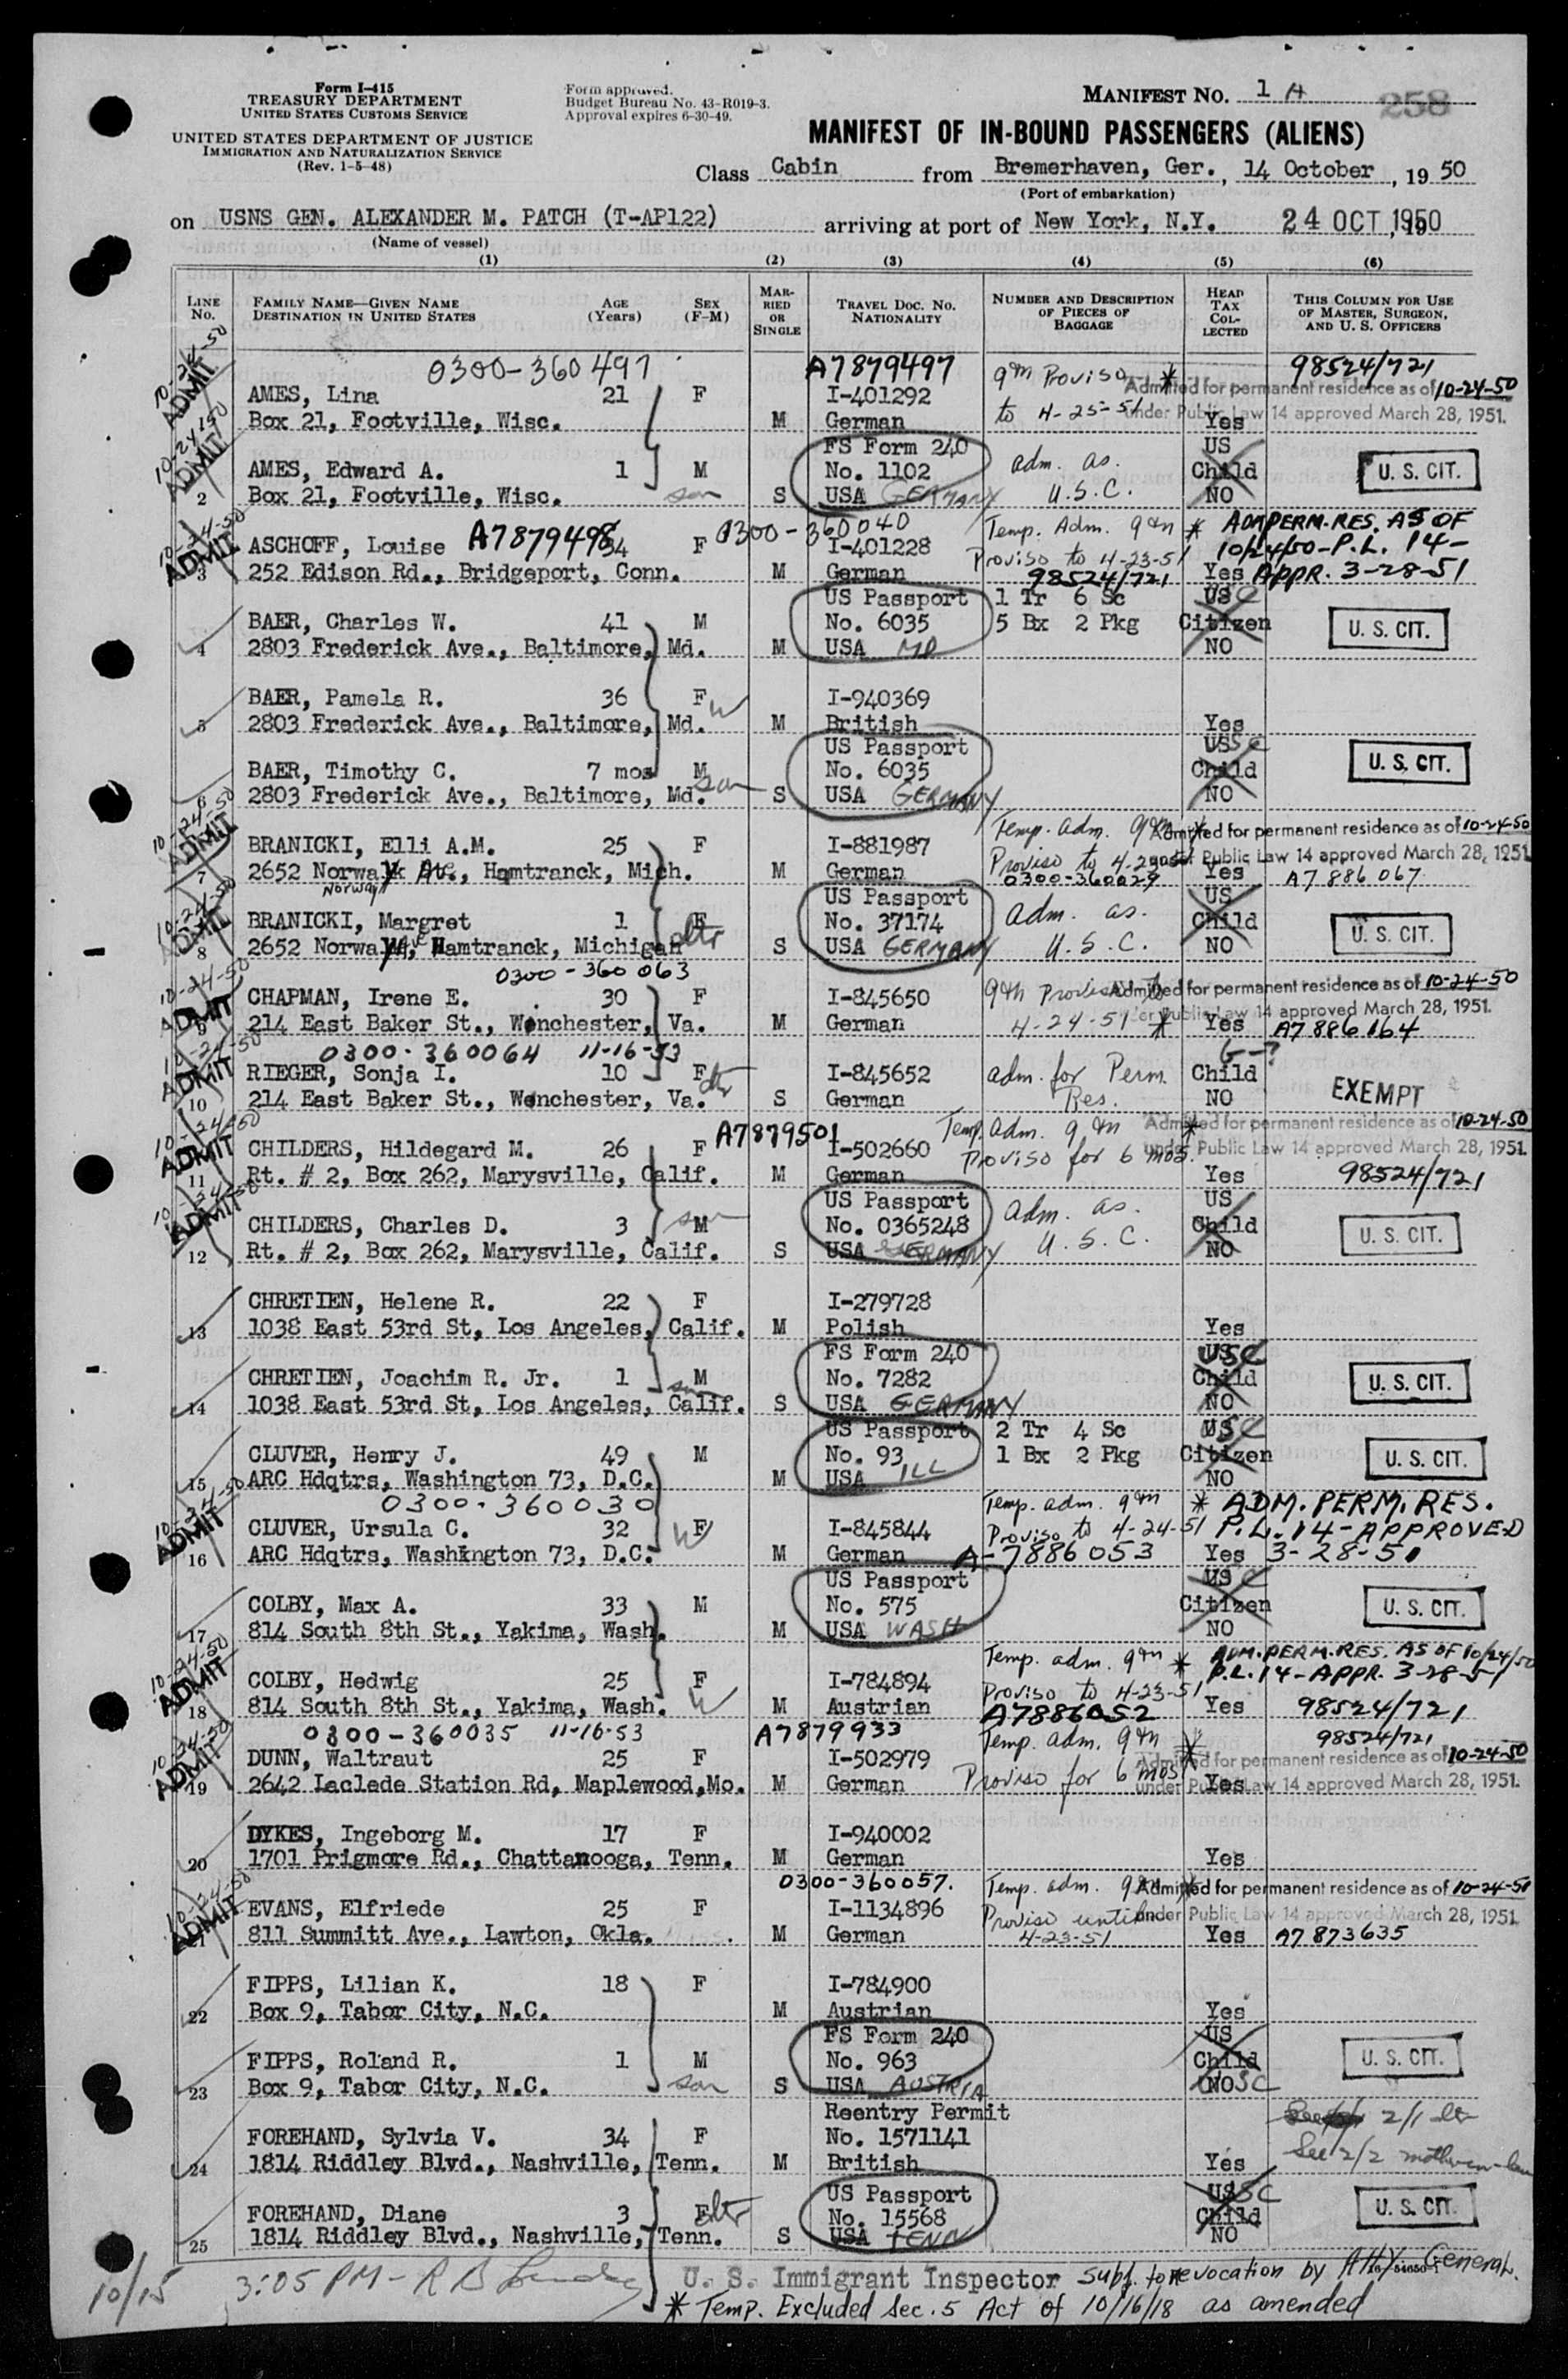 Form I-415
TREASURY DEPARTMENT
UNITED STATES CUSTOMS SERVICE
UNITED STATES DEPARTMENT OF JUSTICE
IMMIGRATION AND NATURALIZATION SERVICE
(Rev. 1-5-48)
Form approved.
Budget Bureau No. 43-R019-3.
Approval expires 6-30-49.
MANIFEST NO. 1 A
258
MANIFEST OF IN-BOUND PASSENGERS (ALIENS)
Class Cabin from Bremerhaven, Ger., 14 October, 1950
(Port of embarkation)
on USNS GEN. ALEXANDER M. PATCH (T-AP122) arriving at port of New York, N.Y. 24 OCT 1950
(Name of vessel)
(1) (2) (3) (4) (5) (6)
LINE NO. FAMILY NAME—GIVEN NAME DESTINATION IN UNITED STATES AGE (Years) SEX (F-M) MARRIED OR SINGLE TRAVEL DOC. NO. NATIONALITY NUMBER AND DESCRIPTION OF PIECES OF BAGGAGE HEAD TAX COLLECTED THIS COLUMN FOR USE OF MASTER, SURGEON, AND U. S. OFFICERS
10-24-50 ADMIT
0300-360497 A7879497 98524/721
AMES, Lina 21 F I-401292 9th Proviso * Admitted for permanent residence as of 10-24-50
Box 21, Footville, Wisc. M German to 4-25-51 under Public Law 14 approved March 28, 1951.
Yes
10-24-50 ADMIT
FS Form 240 US
AMES, Edward A. 1 M No. 1102 adm. as. Child U. S. CIT.
2 Box 21, Footville, Wisc. son S USA GERMANY U.S.C. NO
10-24-50 ADMIT
A7879498 0300-360040 Temp. Adm. 9th * ADM PERM. RES. AS OF
ASCHOFF, Louise 34 F I-401228 Proviso to 4-23-51 10/24/50-P.L. 14-
3 252 Edison Rd., Bridgeport, Conn. M German 98524/721 Yes APPR. 3-28-51
US Passport 1 Tr 6 Sc USC
BAER, Charles W. 41 M No. 6035 5 Bx 2 Pkg Citizen U. S. CIT.
4 2803 Frederick Ave., Baltimore, Md. M USA MD NO
BAER, Pamela R. 36 F W I-940369
5 2803 Frederick Ave., Baltimore, Md. M British Yes
US Passport USSC
BAER, Timothy C. 7 mos M son No. 6035 Child U. S. CIT.
6 2803 Frederick Ave., Baltimore, Md. S USA GERMANY NO
10-24-50 ADMIT
BRANICKI, Elli A.M. 25 F I-881987 Temp. adm. 9th * Admitted for permanent residence as of 10-24-50
Proviso to 4-2 under Public Law 14 approved March 28, 1951.
7 2652 Norwalk Ave., Hamtranck, Mich. M German 0300-360029 Yes A7886067
Norway
10-24-50 ADMIT
US Passport US
BRANICKI, Margret 1 F dtr No. 37174 adm. as. Child U. S. CIT.
8 2652 Norwa Ave, Hamtranck, Michigan S USA GERMANY U.S.C. NO
0300-360063
10-24-50 ADMIT
CHAPMAN, Irene E. 30 F I-845650 9th Proviso to Admitted for permanent residence as of 10-24-50
under Public Law 14 approved March 28, 1951.
9 214 East Baker St., Winchester, Va. M German 4-24-51 * Yes A7886164
10-24-50 ADMIT
0300-360064 11-16-53 G-?
RIEGER, Sonja I. 10 F dtr I-845652 adm. for Perm. Child EXEMPT
10 214 East Baker St., Winchester, Va. S German Res. NO
10-24-50 ADMIT
A7879501 Temp. adm. 9th * Admitted for permanent residence as of 10-24-50
CHILDERS, Hildegard M. 26 F I-502660 Proviso for 6 mos. under Public Law 14 approved March 28, 1951.
11 Rt. # 2, Box 262, Marysville, Calif. M German Yes 98524/721
10-24-50 ADMIT
US Passport US
CHILDERS, Charles D. 3 M son No. 0365248 adm. as. Child U. S. CIT.
12 Rt. # 2, Box 262, Marysville, Calif. S USA GERMANY U.S.C. NO
CHRETIEN, Helene R. 22 F I-279728
13 1038 East 53rd St, Los Angeles, Calif. M Polish Yes
FS Form 240 USC
CHRETIEN, Joachim R. Jr. 1 M son No. 7282 Child U. S. CIT.
14 1038 East 53rd St, Los Angeles, Calif. S USA GERMANY NO
US Passport 2 Tr 4 Sc USC
CLUVER, Henry J. 49 M No. 93 1 Bx 2 Pkg Citizen U. S. CIT.
15 ARC Hdqtrs, Washington 73, D.C. M USA ILL NO
10-24-50 ADMIT
0300-360030 Temp. adm. 9th * ADM. PERM. RES.
CLUVER, Ursula C. 32 F W I-845844 Proviso to 4-24-51 P.L. 14-APPROVED
16 ARC Hdqtrs, Washington 73, D.C. M German A-7886053 Yes 3-28-51
US Passport USC
COLBY, Max A. 33 M No. 575 Citizen U. S. CIT.
17 814 South 8th St., Yakima, Wash. M USA WASH NO
10-24-50 ADMIT
Temp. adm. 9th * ADM. PERM. RES. AS OF 10/24/50
COLBY, Hedwig 25 F W I-784894 Proviso to 4-23-51 P.L. 14-APPR. 3-28-51
18 814 South 8th St., Yakima, Wash. M Austrian A7886052 Yes 98524/721
10-24-50 ADMIT
0300-360035 11-16-53 A7879933 Temp. adm. 9th * 98524/721
DUNN, Waltraut 25 F I-502979 Proviso for 6 mos. Admitted for permanent residence as of 10-24-50
19 2642 Laclede Station Rd, Maplewood, Mo. M German Yes under Public Law 14 approved March 28, 1951.
DYKES, Ingeborg M. 17 F I-940002
20 1701 Prigmore Rd., Chattanooga, Tenn. M German Yes
10-24-50 ADMIT
0300-360057. Temp. adm. 9th * Admitted for permanent residence as of 10-24-51
EVANS, Elfriede 25 F I-1134896 Proviso until under Public Law 14 approved March 28, 1951.
21 811 Summitt Ave., Lawton, Okla. M German 4-23-51 Yes A7873635
FIPPS, Lilian K. 18 F I-784900
22 Box 9, Tabor City, N.C. M Austrian Yes
FS Form 240 US
FIPPS, Roland R. 1 M son No. 963 Child U. S. CIT.
23 Box 9, Tabor City, N.C. S USA AUSTRIA NO SC
Reentry Permit 2/1
FOREHAND, Sylvia V. 34 F No. 1571141 See 2/2 mother-in-law
24 1814 Riddley Blvd., Nashville, Tenn. M British Yes
US Passport USSC
FOREHAND, Diane 3 F dtr No. 15568 Child U. S. CIT.
25 1814 Riddley Blvd., Nashville, Tenn. S USA TENN NO
10/15 3:05 PM - R B
U. S. Immigrant Inspector Subj. to revocation by Atty General.
* Temp. Excluded Sec. 5 Act of 10/16/18 as amended